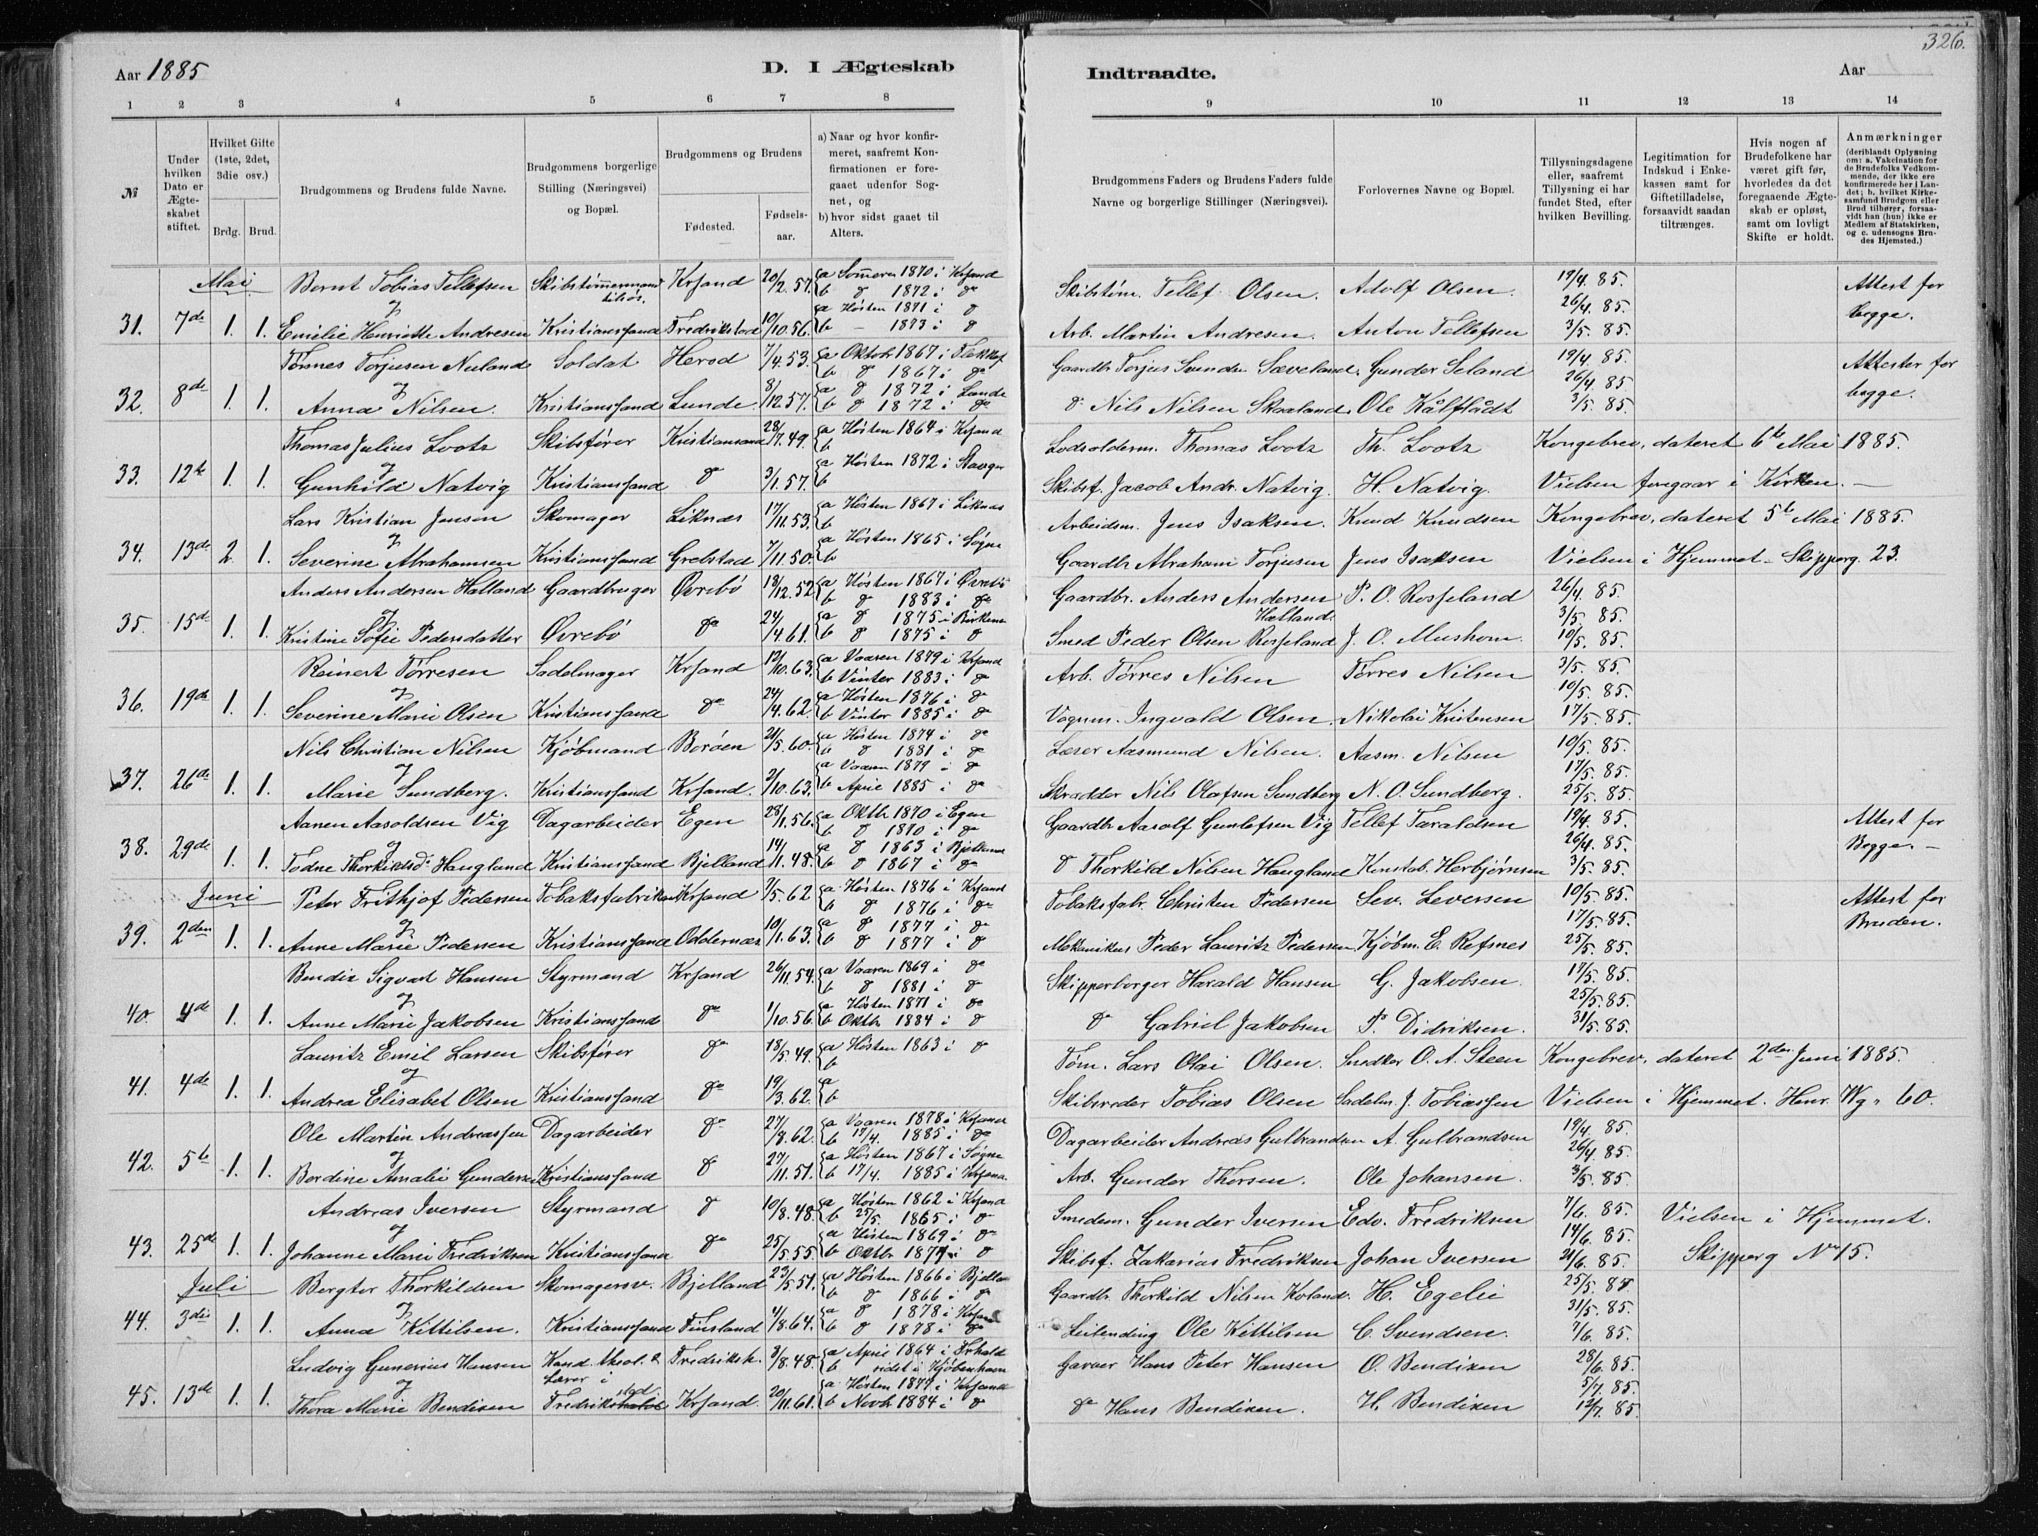 326.
Aar 1885 D. I Ægteskab Indtraadte. Aar
1 2 3 4 5 6 7 8 9 10 11 12 13 14
№
Under hvilken Dato er Ægteskabet stiftet.
Hvilket Gifte (1ste, 2det, 3die osv.)
Brdg. Brud.
Brudgommens og Brudens fulde Navne.
Brudgommens borgerlige Stilling (Næringsvei) og Bopæl.
Brudgommens og Brudens
Fødested. Fødselsaar.
a) Naar og hvor konfirmeret, saafremt Konfirmationen er foregaaet udenfor Sognet, og
b) hvor sidst gaaet til Alters.
Brudgommens Faders og Brudens Faders fulde Navne og borgerlige Stillinger (Næringsvei).
Forlovernes Navne og Bopæl.
Tillysningsdagene eller, saafremt Tillysning ei har fundet Sted, efter hvilken Bevilling.
Legitimation for Indskud i Enkekassen samt for Giftetilladelse, forsaavidt saadan tiltrænges.
Hvis nogen af Brudefolkene har været gift før, hvorledes da det foregaaende Ægteskab er opløst, samt om lovligt Skifte er holdt.
Anmærkninger (deriblandt Oplysning om: a. Vakcination for de Brudefolks Vedkommende, der ikke ere konfirmerede her i Landet; b. hvilket Kirkesamfund Brudgom eller Brud tilhører, forsaavidt han (hun) ikke er Medlem af Statskirken, og c. udensogns Brudes Hjemsted.)
Mai Bernt Tobias Tellefsen Skibstømmermand Krsand 20/2.57. a Sommeren 1870 i Krsand b do 1872 i do Skibstøm. Tellef Olsen. Adolf Olsen. 19/4 85. 26/4 85. Attest for
31. 7de 1. 1. Emilie Henriette Andresen Kristianssand Fredrikstad 10/10.56. a Høsten 1871 i do b – 1873 i do Arb. Martin Andresen. Anton Tellefsen 3/5. 85. begge.
Tørnes Torjusen Neuland Soldat Herod 7/4.53. a Oktobr 1867 i b do 1867 i do Gaardbr Torjus Gunder Seland 19/4 85. 26/4 85 Attester for
32. 8de 1. 1. Anna Nilsen. Kristianssand Lunde. 8/12.57. a do 1872 i Lunde b do 1872 i do do Nils Nilsen Skaaland. Ole Kålflådt 3/5. 85. begge.
Thomas Julius Lootz Skibsfører Kristianssand 28/7.49. a Høsten 1864 i Krsand b Lodsolderm. Thomas Lootz Th. Lootz Kongebrev, dateret 6te Mai 1885.
33. 12te 1. 1. Gunhild Natvig Kristianssand do 3/1.57. a Høsten 1872 i Stavgr b Skibsf. Jacob Andr. Natvig. H. Natvig. Vielsen foregaar i Kirken. –
Lars Kristian Jensen Skomager Liknæs 17/11.53. a Høsten 1867 i Liknæs b Arbeidsm. Jens Isaksen. Knud Knudsen Kongebrev, dateret 5te Mai 1885.
34. 13de 2. 1. Severine Abrahamsen Kristianssand Grebstad 7/11.50. a Høsten 1865 i Søgne b Gaardbr Abraham Torjusen Jens Isaksen Vielsen i Hjemmet – Skipperg 23.
Anders Andersen Halland Gaardbruger Øvrebø 18/12.52 a Høsten 1867 i Øvrebø b do 1883 i do Gaardbr. Anders Andersen Halland. P. O. Rosseland 26/4. 85. 3/5. 85.
35. 15de 1. 1. Kristine Sofie Pedersdatter Øvrebø do 24/4.61. a do 1875 i Birkenes b do 1875 i do Smed Peder Olsen Rosseland J. O. Mushom. 10/5. 85.
Reinert Tørresen Sadelmager Krsand 12/10.63. a Vaaren 1879 i Krsand b Vinter 1883 i do Arb. Tørres Nilsen Tørres Nilsen 3/5. 85. 10/5. 85.
36. 19de 1. 1. Severine Marie Olsen Kristianssand do 24/4.62. a Høsten 1876 i do b Vinter 1885 i do Vognm. Ingvald Olsen. Nikolai Kristensen 17/5. 85.
Nils Christian Nilsen Kjøbmand Borøen 21/5.60. a Høsten 1874 i do b do 1881 i do Læser Aasmund Nilsen. Aasm. Nilsen 10/5. 85. 17/5. 85.
37. 26de 1. 1. Marie Sundberg. Kristianssand Krsand. 3/10.63. a Vaaren 1879 i do b April 1885 i do Skrædder Nils Olafsen Sundberg N. O. Sundberg. 25/5. 85.
Aanen Aasoldsen Vig Dagarbeider Egen 28/1.56. a Oktbr 1870 i Egen b do 1870 i do Gaardbr Aasolf Gunlefsen Vig Tellef Taraldsen 19/4. 85. 26/4. 85. Attest for
38. 29de 1. 1. Todne Thorkildsd. Haugland Kristianssand Bjelland 14/11.48. a do 1863 i Bjelland b do 1867 i do do Thorkild Nilsen Haugland Konstab. Herbjørnsen 3/5. 85. Begge. –
Juni Peter Frithjof Pedersen Tobaksfabrikør Krsand 7/5.62 a Høsten 1876 i Krsand b do 1876 i do Tobaksfabr. Christen Pedersen Sev. Seversen 10/5. 85. 17/5. 85. Attest for
39. 2den 1. 1. Anne Marie Pedersen Kristianssand Oddernæs 10/1.63. a do 1877 i do b do 1877 i do Mekanikus Peder Lauritz Pedersen Kjøbm. E. Refsnes 25/5. 85. Bruden.
Bendix Sigvart Hansen Styrmand Krsand 26/11.54. a Vaaren 1869 i do b do 1881 i do Skipperborger Harald Hansen G. Jakobsen. 17/5. 85 25/5. 85.
40. 4de 1. 1. Anne Marie Jakobsen Kristianssand do 1/10.56. a Høsten 1871 i do b Oktbr 1884 i do do Gabriel Jakobsen P. Didriksen. 31/5. 85.
Lauritz Emil Larsen Skibsfører do 18/5.49. a Høsten 1863 i do b Tøm. Lars Olai Olsen. Snedker O. A. Steen Kongebrev, dateret 2den Juni 1885.
41. 4de 1. 1. Andrea Elisabet Olsen Kristianssand do 19/3.62. a b Skibsreder Tobias Olsen Sadelm. J. Tobiassen Vielsen i Hjemmet. Henr. Wg. 60.
Ole Martin Andreassen Dagarbeider do 27/8.62. a Vaaren 1878 i Krsand b 17/4. 1885 i do Dagarbeider Andreas Gulbrandsen A. Gulbrandsen 19/4. 85. 26/4. 85.
42. 5te 1. 1. Bordine Amalie Gundersen Kristianssand do 27/11.51. a Høsten 1867 i Søgne b 17/4. 1885 i Krsand. Arb. Gunder Thorsen. Ole Johansen. 3/5. 85.
Andreas Iversen Styrmand do 10/8.48. a Høsten 1862 i Krsand b 25/5. 1865 i do Smedem. Gunder Iversen Edv. Fredriksen 7/6. 85. 14/6. 85. Vielsen i Hjemmet.
43. 25de 1. 1. Johanne Marie Fredriksen Kristianssand do 25/5.55 a Høsten 1869 i do b Oktbr 1877 i do Skibsf. Zakarias Fredriksen Johan Iversen 21/6. 85. Skipperg No 15.
Juli Bergtor Thorkildsen Skomagersv. Bjelland 23/5.51. a Høsten 1866 i Bjelland b do 1866 i do Gaardbr. Thorkild Nilsen Koland. H. Egelie 25/5. 85 31/5. 85.
44. 3die 1. 1. Anna Kittilsen. Kristianssand Finsland 4/8.64. a do 1878 i Krsand b do 1878 i do Leilending Ole Kittilsen C. Svendsen. 7/6. 85.
Ludvig Gunerius Hansen Kand. theol. & Lærer i Fredriksh. 3/8.48. a April 1864 i Frhald b sidst i Kjøbenhavn Garver Hans Peter Hansen O. Bendixen 28/6. 85. 5/7. 85.
45. 13de 1. 1. Thora Marie Bendixen Fredrikstad Krsand. 20/11.61. a Høsten 1877 i Krsand b Novbr 1884 i do do Hans Bendixen. H. Bendixen 12/7. 85.